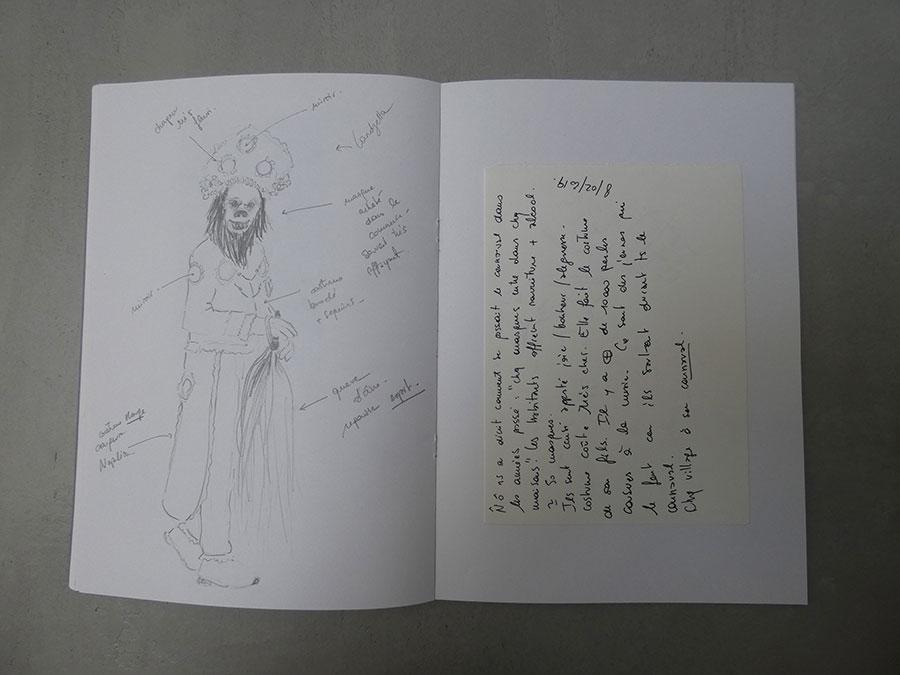 chapeau
miroir.
masque
acheté
dans le
commerce.
souvent très
effrayant
miroir
costume
brodé
+ sequins
queue
d'âne.
repousse esprit.
costume
ns a décrit comment se passait le carnaval dans
les années passé : "chq masques entre dans chq
maisons". les habitants offraient nourriture + alcool.
≃ 50 masques.
Ils sont aussi apporté joie / bonheur /
costume coûte très cher. Elle fait le costume
de son fils. Il y a ⊕ de perles
cousues à la main. Ce sont des jeunes qui
le font car ils sortent durant ts le
carnaval.
Chq village a son carnaval.